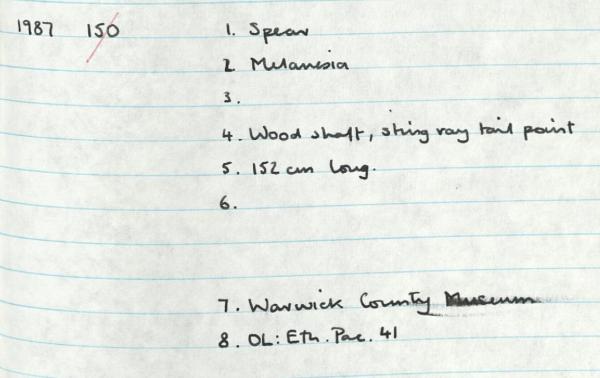 1987 150 1. Spear
2 Melanesia
3.
4. Wood shaft, sting ray tail point
5. 152 cm long.
6.
7. Warwick County Museum
8. OL: Eth. Pac. 41